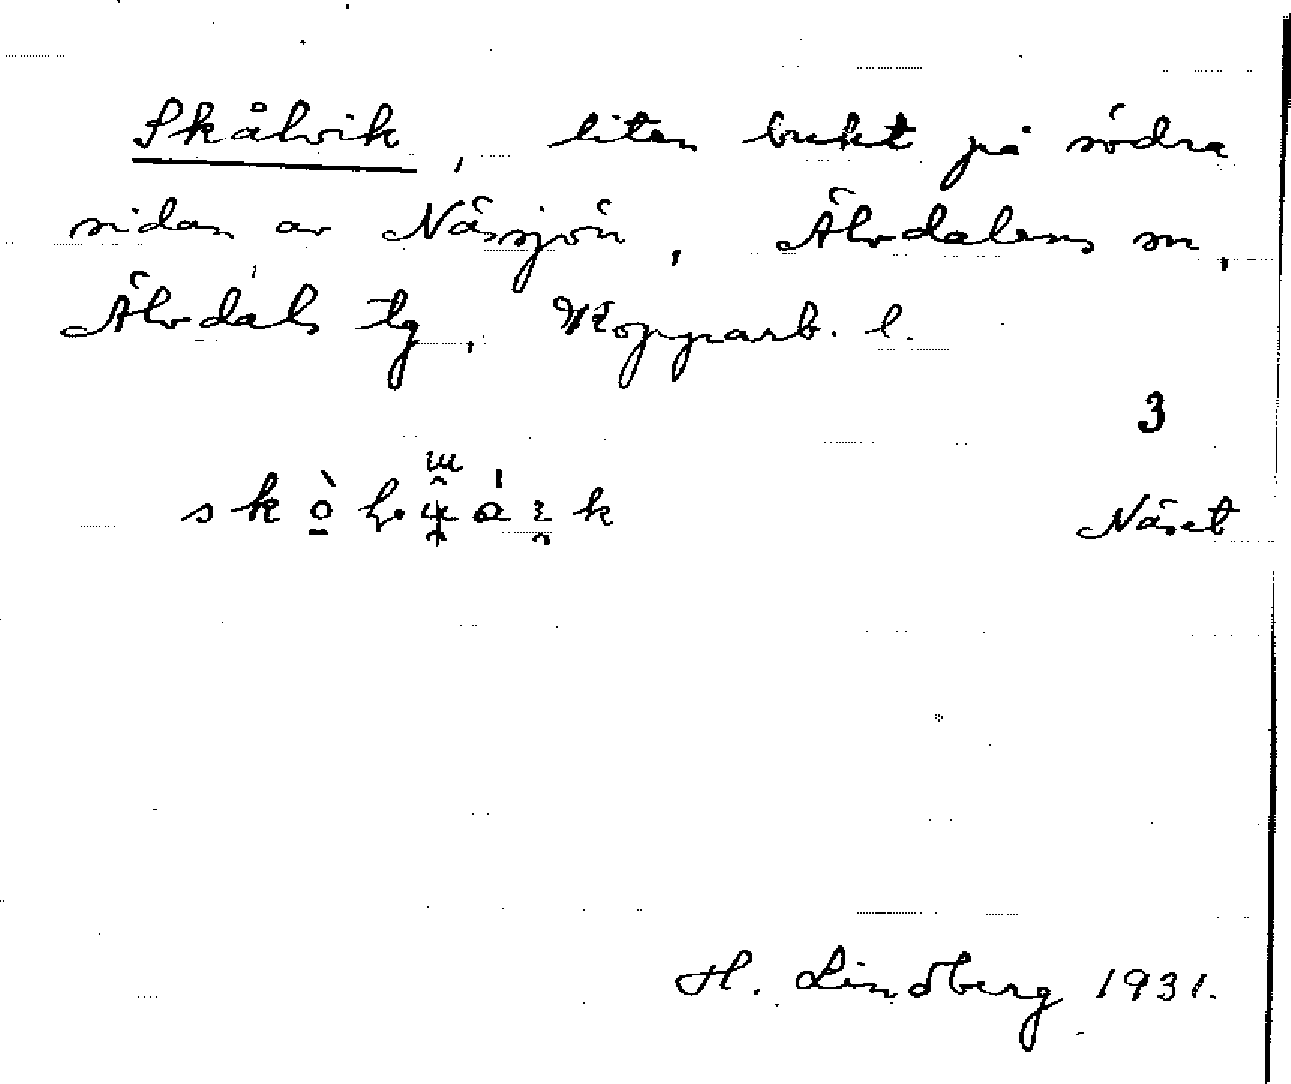 Skålvik, liten bukt på södra
sidan av Nässjön, Älvdalens sn,
Älvdals tg, Kopparb. l.
3
Näset
H. Lindberg 1931.